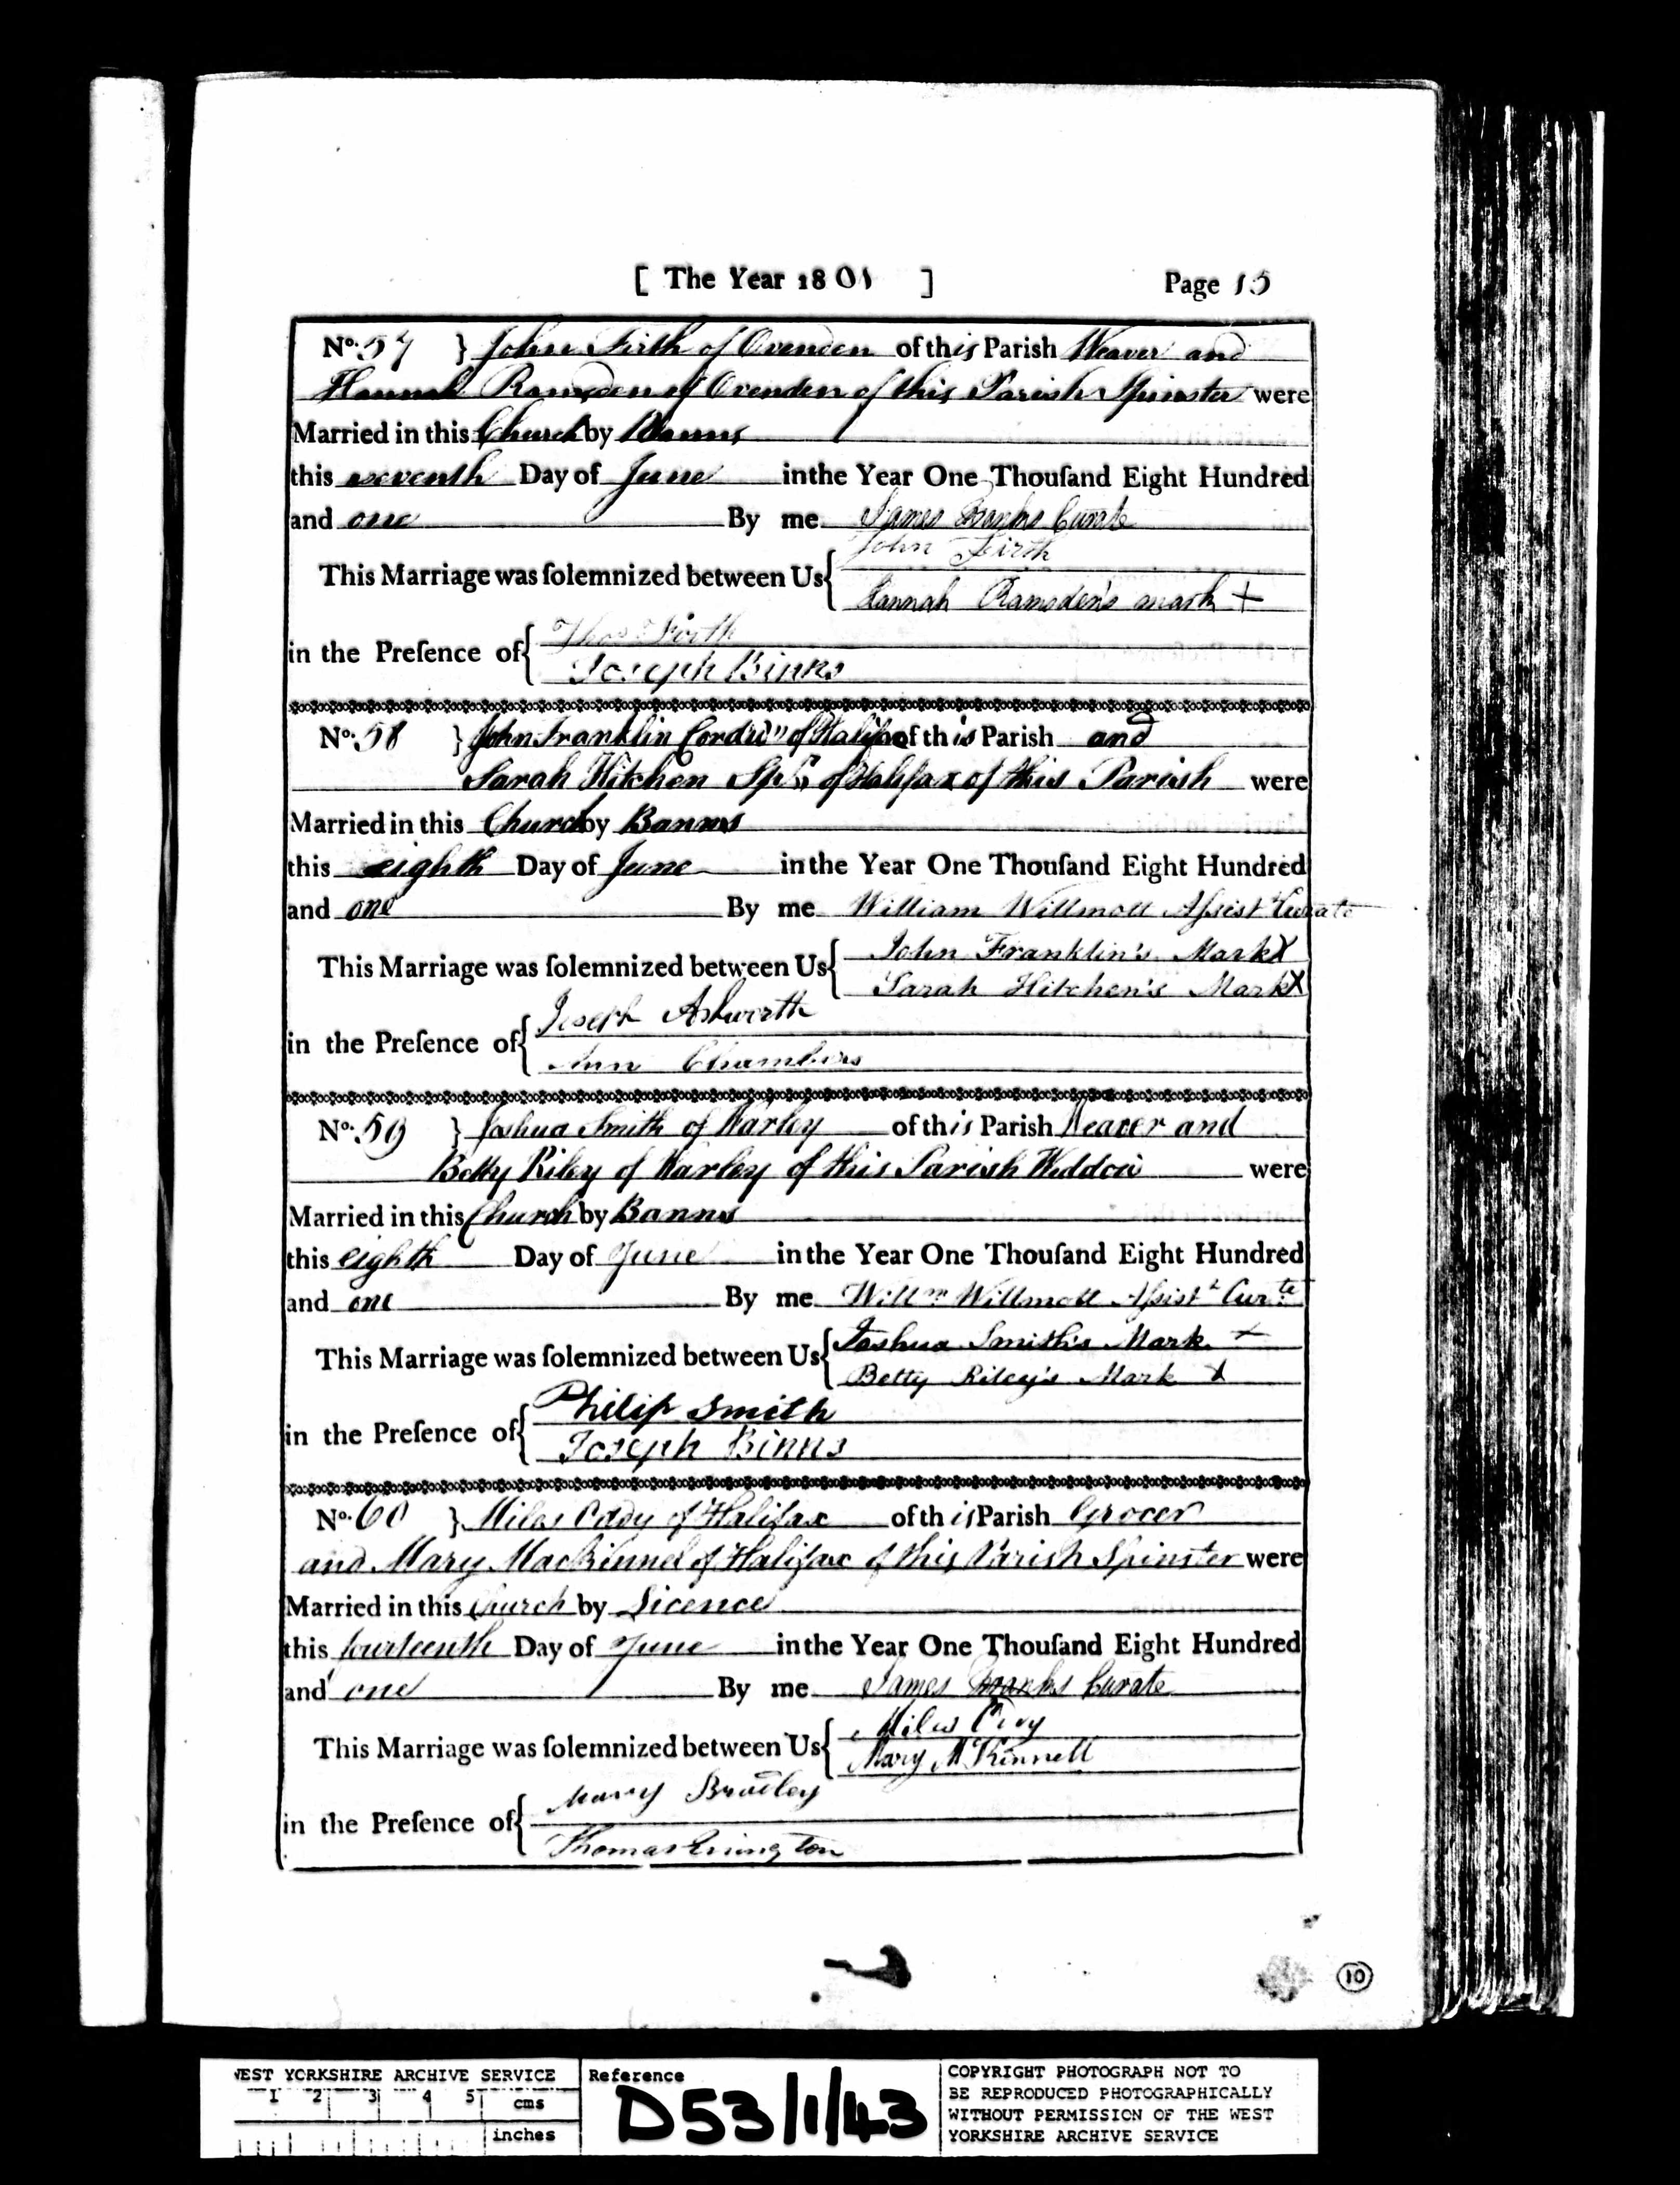 [ The Year 1801 ] Page 15
No. 57 } John Firth of Ovenden of this Parish Weaver and
Hannah Ramsden of Ovenden of this Parish Spinster were
Married in this Church by Banns
this seventh Day of June in the Year One Thouſand Eight Hundred
and one By me James Curate
John Firth
This Marriage was ſolemnized between Us {
Hannah Ramsden's mark +
Thos Firth
in the Preſence of {
Joseph Binns
No. 58 } John Franklin Cordwr of Halifax of this Parish and
Sarah Hitchen Spr of Halifax of this Parish were
Married in this Church by Banns
this eighth Day of June in the Year One Thouſand Eight Hundred
and one By me William Willmott Assist Curate
John Franklin's Mark X
This Marriage was ſolemnized between Us {
Sarah Hitchen's Mark X
Joseph Ashworth
in the Preſence of {
Ann Chambers
No. 59 } Joshua Smith of Warley of this Parish Weaver and
Betty Riley of Warley of this Parish Widdow were
Married in this Church by Banns
this eighth Day of June in the Year One Thouſand Eight Hundred
and one By me Willm Willmott Assist Curte
Joshua Smith's Mark +
This Marriage was ſolemnized between Us {
Betty Riley's Mark X
Philip Smith
in the Preſence of {
Joseph Binns
No. 60 } Miles of Halifax of this Parish Grocer
and Mary Mackinnel of Halifax of this Parish Spinster were
Married in this Church by Licence
this fourteenth Day of June in the Year One Thouſand Eight Hundred
and one By me James Curate
Miles
This Marriage was ſolemnized between Us {
Mary McKinnell
Mary Bradley
in the Preſence of {
Thomas Errington
10
WEST YORKSHIRE ARCHIVE SERVICE
1 2 3 4 5 cms
inches
Reference
D53/1/43
COPYRIGHT PHOTOGRAPH NOT TO
BE REPRODUCED PHOTOGRAPHICALLY
WITHOUT PERMISSION OF THE WEST
YORKSHIRE ARCHIVE SERVICE